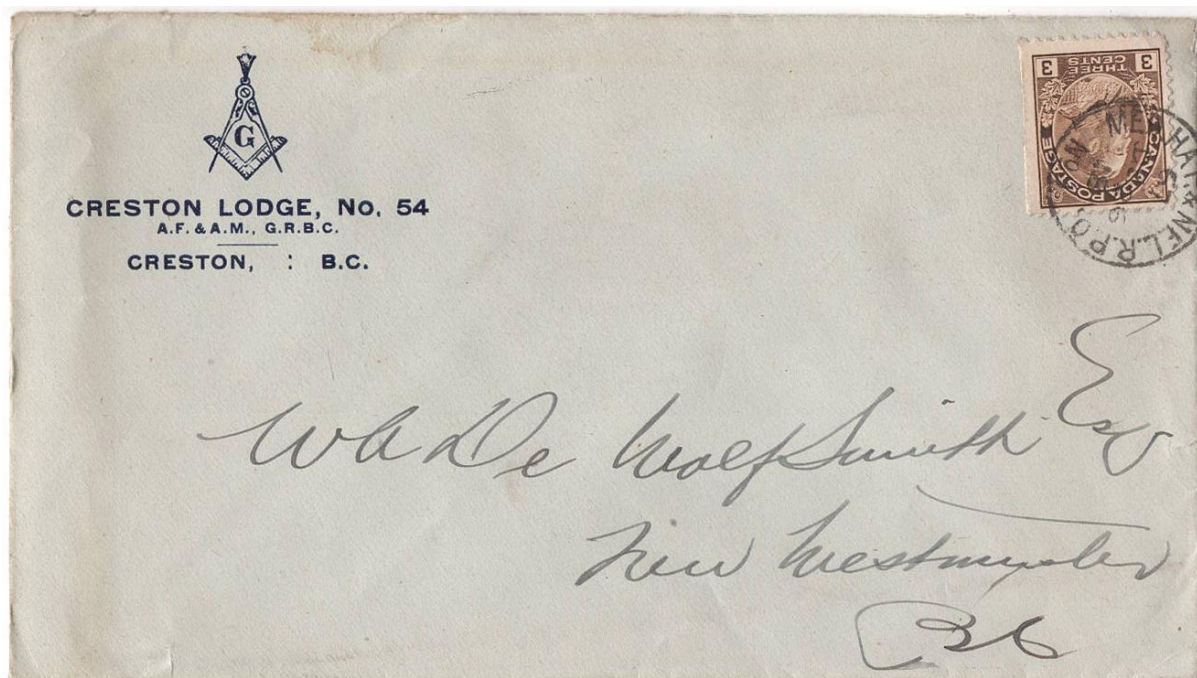 G
CRESTON LODGE, No. 54
A.F. & A.M., G.R.B.C.
CRESTON, : B.C.
3 THREE CENTS 3
CANADA POSTAGE
MED. HAT. & NEL. R.P.O.
W A De Wolf Smith Esq
New Westminster
BC